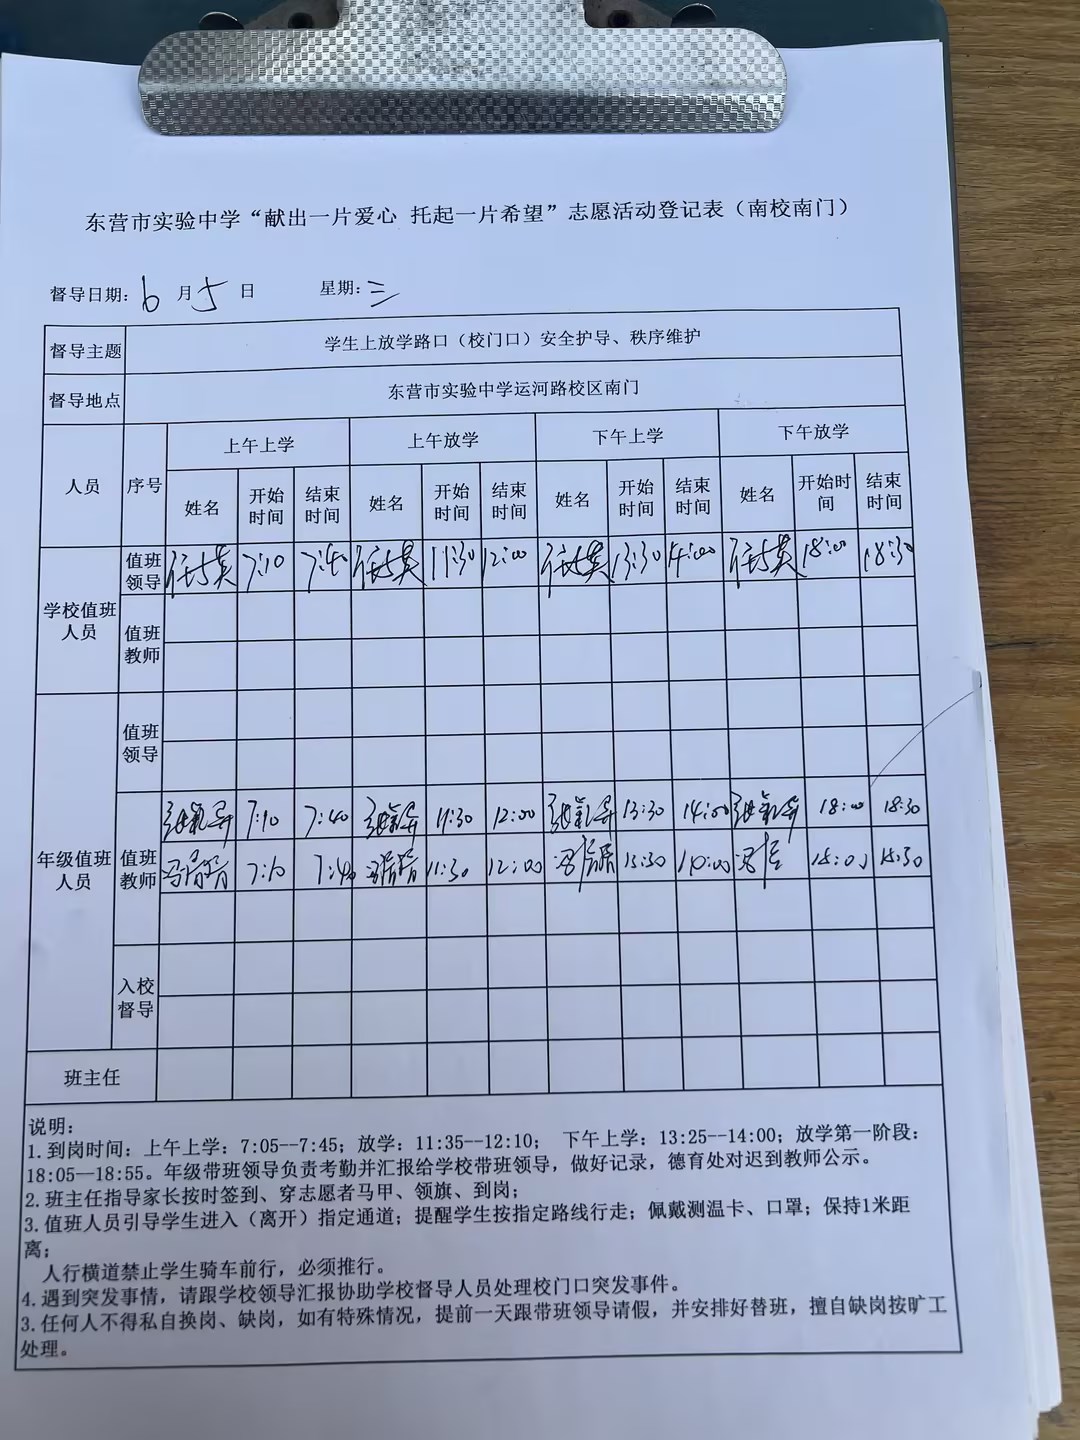 东营市实验中学“献出一片爱心 托起一片希望”志愿活动登记表（南校南门）
督导日期：6月5日 星期：三
督导主题 学生上放学路口（校门口）安全护导、秩序维护
督导地点 东营市实验中学运河路校区南门
人员 序号 上午上学 上午放学 下午上学 下午放学
姓名 开始时间 结束时间 姓名 开始时间 结束时间 姓名 开始时间 结束时间 姓名 开始时间 结束时间
学校值班人员 值班领导 7:10 7:40 11:30 12:00 13:30 14:00 18:00 18:30
值班教师
年级值班人员 值班领导
值班教师 7:10 7:40 11:30 12:00 13:30 14:00 18:00 18:30
7:10 7:40 11:30 12:00 13:30
入校督导
班主任
说明：
1.到岗时间：上午上学：7:05--7:45；放学：11:35--12:10； 下午上学：13:25--14:00；放学第一阶段：
18:05—18:55。年级带班领导负责考勤并汇报给学校带班领导，做好记录，德育处对迟到教师公示。
2.班主任指导家长按时签到、穿志愿者马甲、领旗、到岗；
3.值班人员引导学生进入（离开）指定通道；提醒学生按指定路线行走；佩戴测温卡、口罩；保持1米距
离；
人行横道禁止学生骑车前行，必须推行。
4.遇到突发事情，请跟学校领导汇报协助学校督导人员处理校门口突发事件。
3.任何人不得私自换岗、缺岗，如有特殊情况，提前一天跟带班领导请假，并安排好替班，擅自缺岗按旷工
处理。